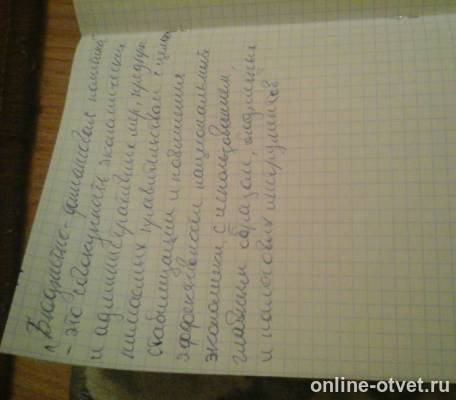 „Бюджетно-финансовая политика"
- это совокупность экономических
и административных мер, предпри-
нимаемых правительством с целью
стабилизации и повышения
эффективности национальной
экономики, с использованием,
главным образом, бюджетных
и налоговых инструментов
online-otvet.ru